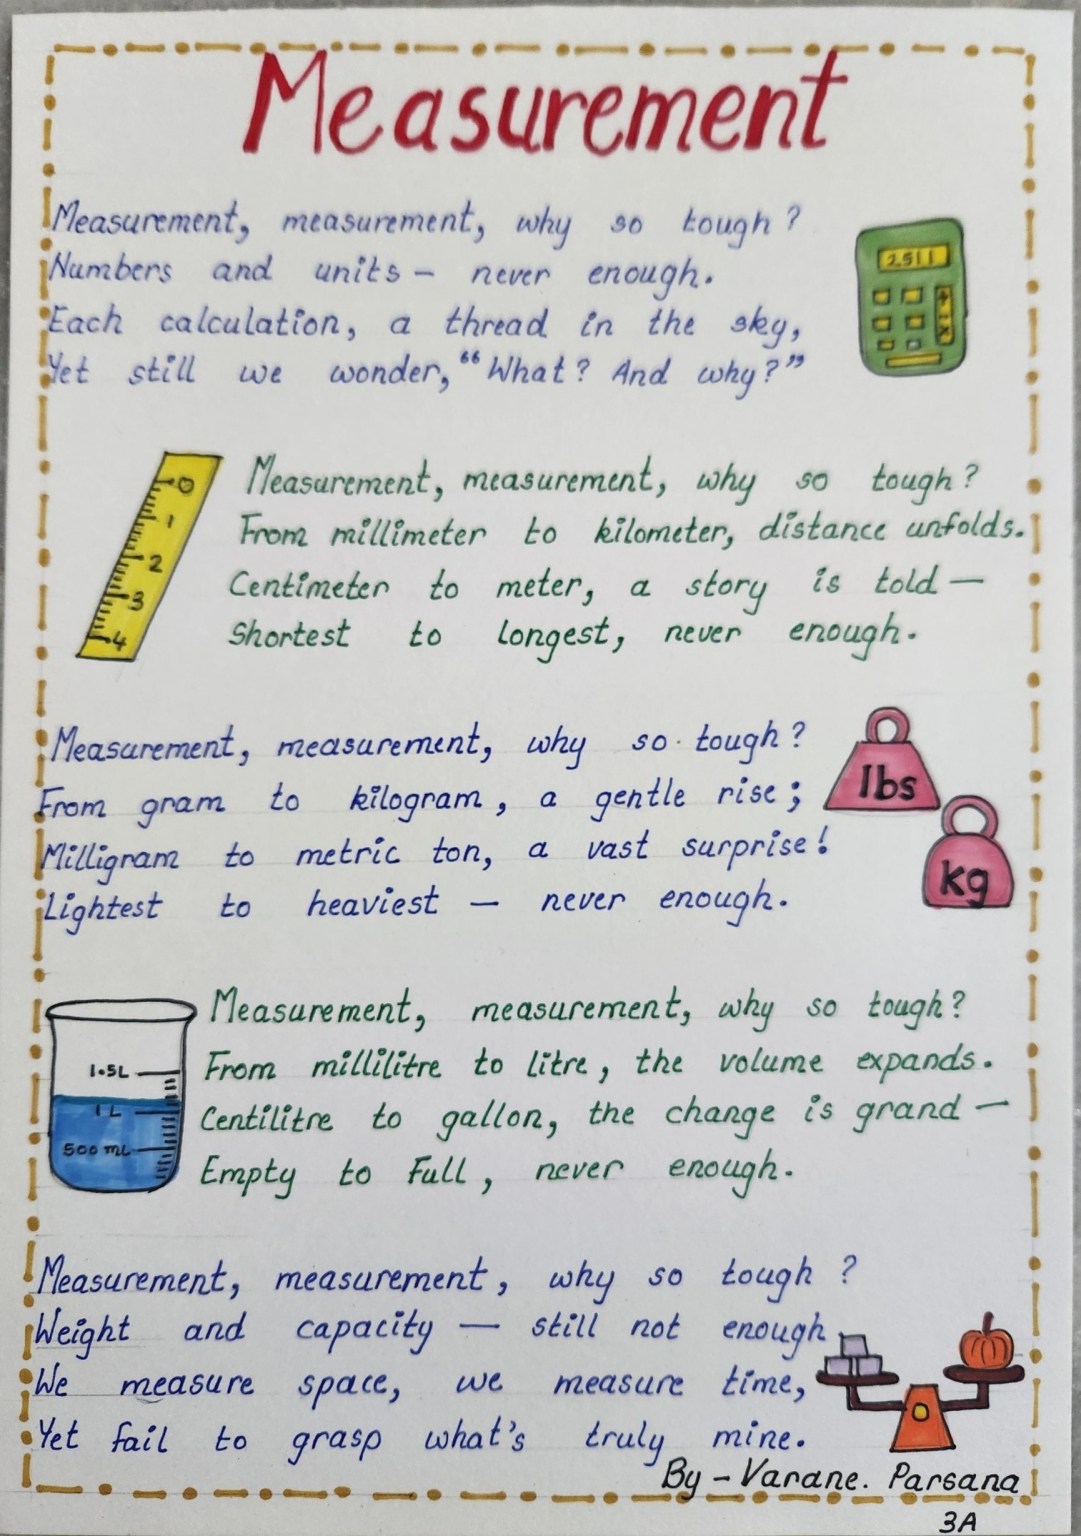 Measurement
Measurement, measurement, why so tough?
Numbers and units - never enough.
Each calculation, a thread in the sky,
Yet still we wonder, “What? And why?”
2.511
Measurement, measurement, why so tough?
From millimeter to kilometer, distance unfolds.
Centimeter to meter, a story is told —
Shortest to longest, never enough.
0
1
2
3
4
Measurement, measurement, why so tough?
From gram to kilogram, a gentle rise;
Milligram to metric ton, a vast surprise!
Lightest to heaviest — never enough.
lbs
kg
Measurement, measurement, why so tough?
From millilitre to litre, the volume expands.
Centilitre to gallon, the change is grand —
Empty to Full, never enough.
1.5L
1L
500 mL
Measurement, measurement, why so tough?
Weight and capacity — still not enough
We measure space, we measure time,
Yet fail to grasp what's truly mine.
By - Varane. Parsana
3A